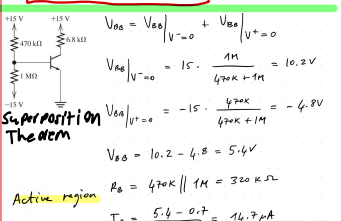 +15 V +15 V
470 kΩ
6.8 kΩ
1 MΩ
-15 V
Superposition
Theorem
V_BB = V_BB|V⁻=0 + V_BB|V⁺=0
V_BB|V⁻=0 = 15 · 1M / 470K + 1M = 10.2V
V_BB|V⁺=0 = -15 · 470K / 470K + 1M = -4.8V
V_BB = 10.2 - 4.8 = 5.4V
Active region
R_B = 470K || 1M = 320 KΩ
5.4 - 0.7
= 14.7 μA